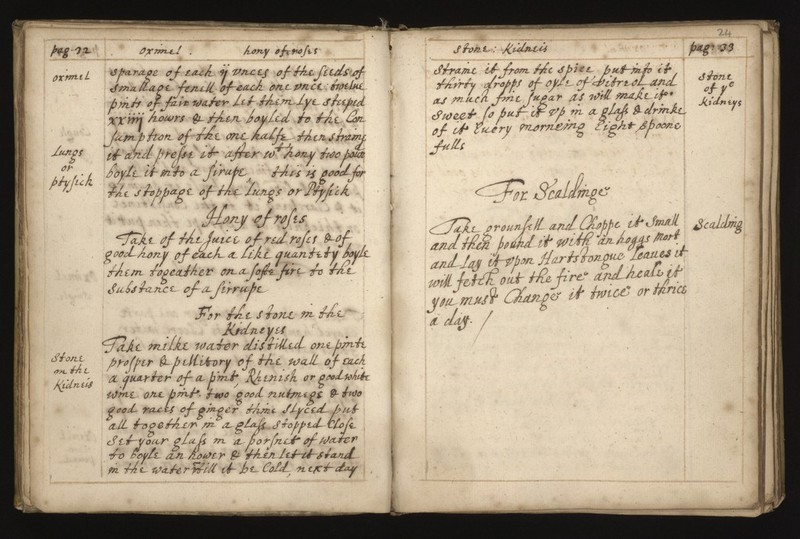 pag: 32
oximel . hony of roses
oximel
sparage of each ij vnces of the seeds of
smallage fenell of each one vnce twelue
pints of fair water Let them Lye steeped
xxiiij howrs & then boyled to the Con
sumption of the one halfe then straine
it and presse it after wth hony two poun
boyle it into a sirupe this is good for
the stoppage of the Lungs or Ptysick
Lungs
or
ptysick
Hony of roses
Take of the Juice of red roses & of
good hony of each a like quantety boyle
them togeather on a softe fire to the
substance of a sirrupe
For the stone in the
Kidneyes
stone
on the
Kidneis
Take milke water distilled one pinte
prosper & pellitory of the wall of each
a quarter of a pint, Rhenish or good white
wine one pint two good nutmegs & two
good races of ginger thine slyced put
all together in a glass stopped Close
set your glass in a porsnet of water
to boyle an hower & then let it stand
in the water till it be Cold, next day
24
stone: Kidneis
pag: 33
straine it from the spice put into it
thirty dropps of oyle of vitreol and
as much fine sugar as will make it
sweet so put it vp in a glass & drinke
of it Every morneing Eight spoone
fulls
stone
of ye
kidneys
For Scaldinge
Scalding
Take grounsell and Choppe it Small
and then pound it with an hoggs Mort
and Lay it vpon Hartstongue Leaues it
will fetch out the fire and heale it
you must Change it twice or thrice
a day. /